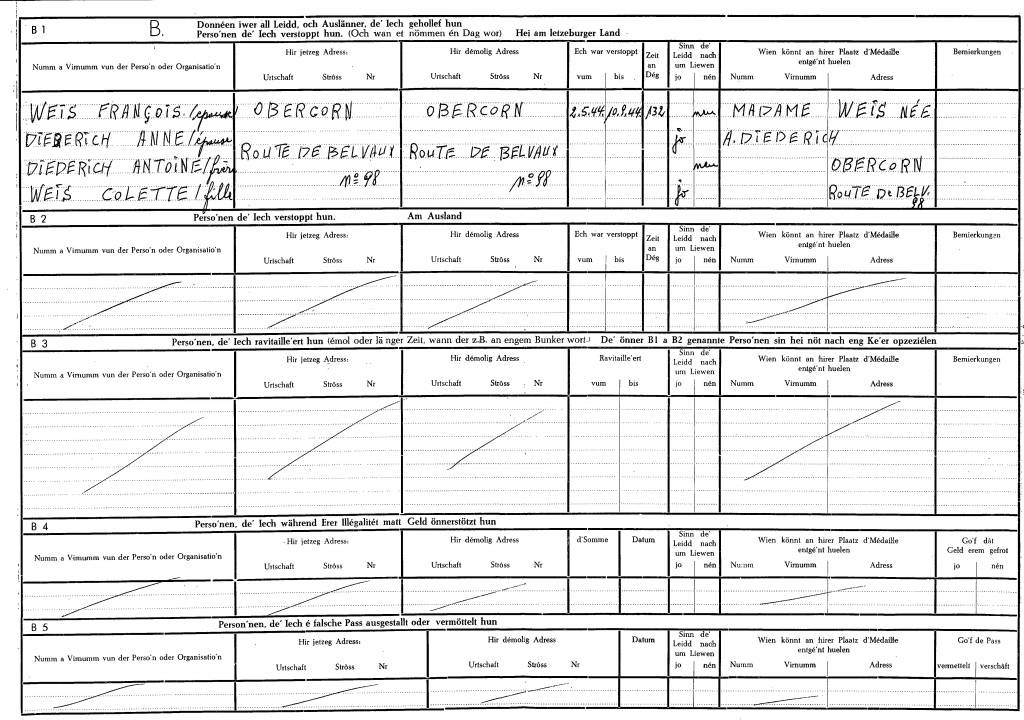 B 1 B. Donnéen iwer all Leidd, och Auslänner, de' Iech gehollef hun
Perso'nen de' Iech verstoppt hun. (Och wan et nömmen én Dag wor) Hei am letzeburger Land
Numm a Virnumm vun der Perso'n oder Organisatio'n Hir jetzeg Adress: Hir démolig Adress Ech war verstoppt Zeit an Dég Sinn de' Leidd nach um Liewen Wien könnt an hirer Plaatz d'Médaille entgé'nt huelen Bemierkungen
Urtschaft Ströss Nr Urtschaft Ströss Nr vum bis jo nén Numm Virnumm Adress
WEIS FRANÇOIS /épouse/ OBERCORN OBERCORN 2.5.44. 10.9.44. 132 nen MADAME WEIS NÉE
DIEDERICH ANNE /épouse jo A. DIEDERICH
ROUTE DE BELVAUX ROUTE DE BELVAUX
DIEDERICH ANTOINE /frère nen OBERCORN
No 98 No 98
WEIS COLETTE / fille jo ROUTE DE BELV.
98
B 2 Perso'nen de' Iech verstoppt hun. Am Ausland
Numm a Virnumm vun der Perso'n oder Organisatio'n Hir jetzeg Adress: Hir démolig Adress Ech war verstoppt Zeit an Dég Sinn de' Leidd nach um Liewen Wien könnt an hirer Plaatz d'Médaille entgé'nt huelen Bemierkungen
Urtschaft Ströss Nr Urtschaft Ströss Nr vum bis jo nén Numm Virnumm Adress
B 3 Perso'nen, de' Iech ravitaille'ert hun (émol oder länger Zeit, wann der z.B. an engem Bunker wort.) De' önner B1 a B2 genannte Perso'nen sin hei nöt nach eng Ke'er opzeziélen
Numm a Virnumm vun der Perso'n oder Organisatio'n Hir jetzeg Adress: Hir démolig Adress Ravitaille'ert Sinn de' Leidd nach um Liewen Wien könnt an hirer Plaatz d'Médaille entgé'nt huelen Bemierkungen
Urtschaft Ströss Nr Urtschaft Ströss Nr vum bis jo nén Numm Virnumm Adress
B 4 Perso'nen, de' Iech während Erer Illégalitét matt Geld önnerstötzt hun
Numm a Virnumm vun der Perso'n oder Organisatio'n Hir jetzeg Adress: Hir démolig Adress d'Somme Datum Sinn de' Leidd nach um Liewen Wien könnt an hirer Plaatz d'Médaille entgé'nt huelen Go'f dát Geld erem gefrot
Urtschaft Ströss Nr Urtschaft Ströss Nr jo nén Numm Virnumm Adress jo nén
B 5 Person'nen, de' Iech é falsche Pass ausgestallt oder vermöttelt hun
Numm a Virnumm vun der Perso'n oder Organisatio'n Hir jetzeg Adress: Hir démolig Adress Datum Sinn de' Leidd nach um Liewen Wien könnt an hirer Plaatz d'Médaille entgé'nt huelen Go'f de Pass
Urtschaft Ströss Nr Urtschaft Ströss Nr jo nén Numm Virnumm Adress vermettelt verschäft